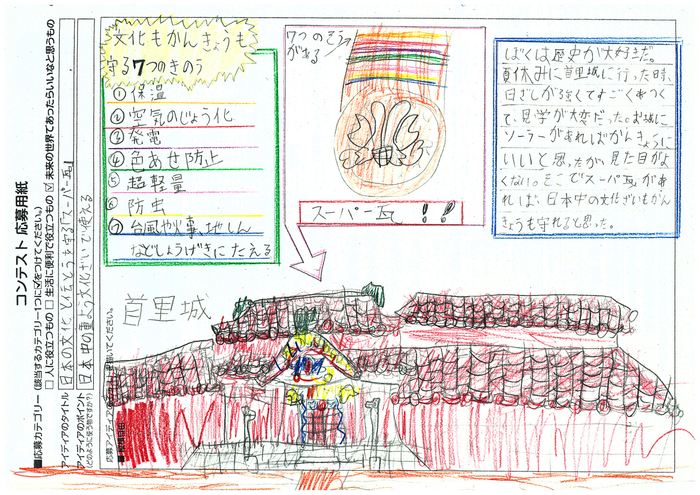 コンテスト 応募用紙
■応募カテゴリー（該当するカテゴリー1つに☑をつけてください。）
□ 人に役立つもの □ 生活に便利で役立つもの ☑ 未来の世界であったらいいなと思うもの
アイディアのタイトル
日本の文化と伝とうを守る「スーパー瓦」
アイディアのポイント
(どのように使う物ですか？)
日本中の重よう文化ざいで使える
文化もかんきょうも
守る7つのきのう
① 保温
② 空気のじょう化
③ 発電
④ 色あせ防止
⑤ 超軽量
⑥ 防虫
⑦ 台風や火事、地しん
などしょうげきにたえる
7つのそう
がある
スーパー瓦!!
ぼくは歴史が大好きだ。
夏休みに首里城に行った時、
日ざしが強くてすごくあつく
て、見学が大変だった。お城に
ソーラーがあればかんきょうに
いいと思ったが、見た目がよ
くない。そこでスーパー瓦があ
れば、日本中の文化ざいもかん
きょうも守れると思った。
首里城